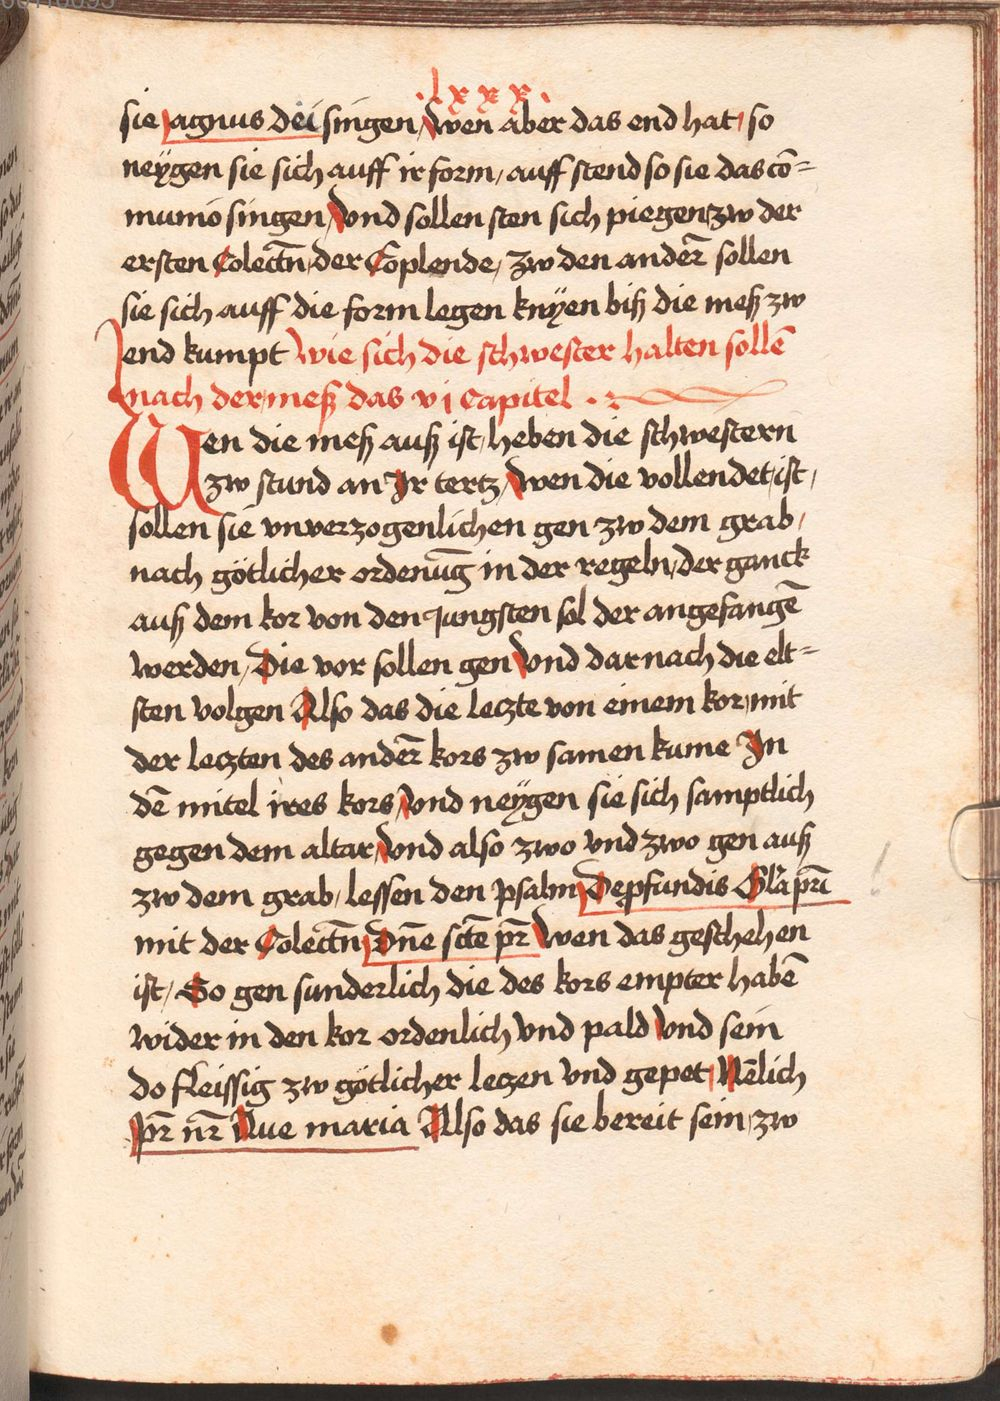 .lxxx.
sie agnus dei singen, wen aber das end hat, so
neÿgen sie sich auff ir form, auff stend so sie das cō=
munio singen, Vnd sollen sten sich piegen zw der
ersten Colectn, der Coplende, zw den anderˉ sollen
sie sich auff die form legen knÿen biß die meß zw
end kumpt Wie sich die schwester halten sollē
nach der meß das vj Capitel .
Wen die meß auß ist, heben die schwestern
zw stund an Ir tertz, Wen die vollendet ist,
sollen sie vnverzogenlichen gen zw dem grab,
nach götlicher ordenūg in der regeln, der ganck
auß dem kor von den Jungsten sol der angefangē
werden, Die vor sollen gen Vnd darnach die elt=
sten volgen Also das die leczte von einem kor, mit
der leczten des anderˉ kors zw samen kume In
dē mitel ires kors, Vnd neÿgen sie sich samptlich
gegen dem altar, Vnd also zwo vnd zwo gen auß
zw dem grab, lessen den psalm De pfundis Glā pri̅
mit der Colectn Dn̅e sct̅e pr̅ Wen das geschehen
ist, So gen sunderlich die des kors empter habē
wider in den kor ordenlich Vnd pald Vnd sein
do fleissig zw götlicher leczen Vnd gepet, Nēlich
Pr̅ nr̅ Aue maria Also das sie bereit sein, zw